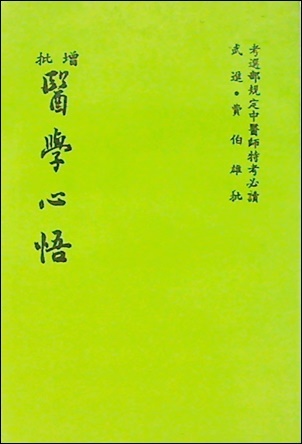 考選部規定中醫師特考必讀
武進·費伯雄批
增批
醫學心悟